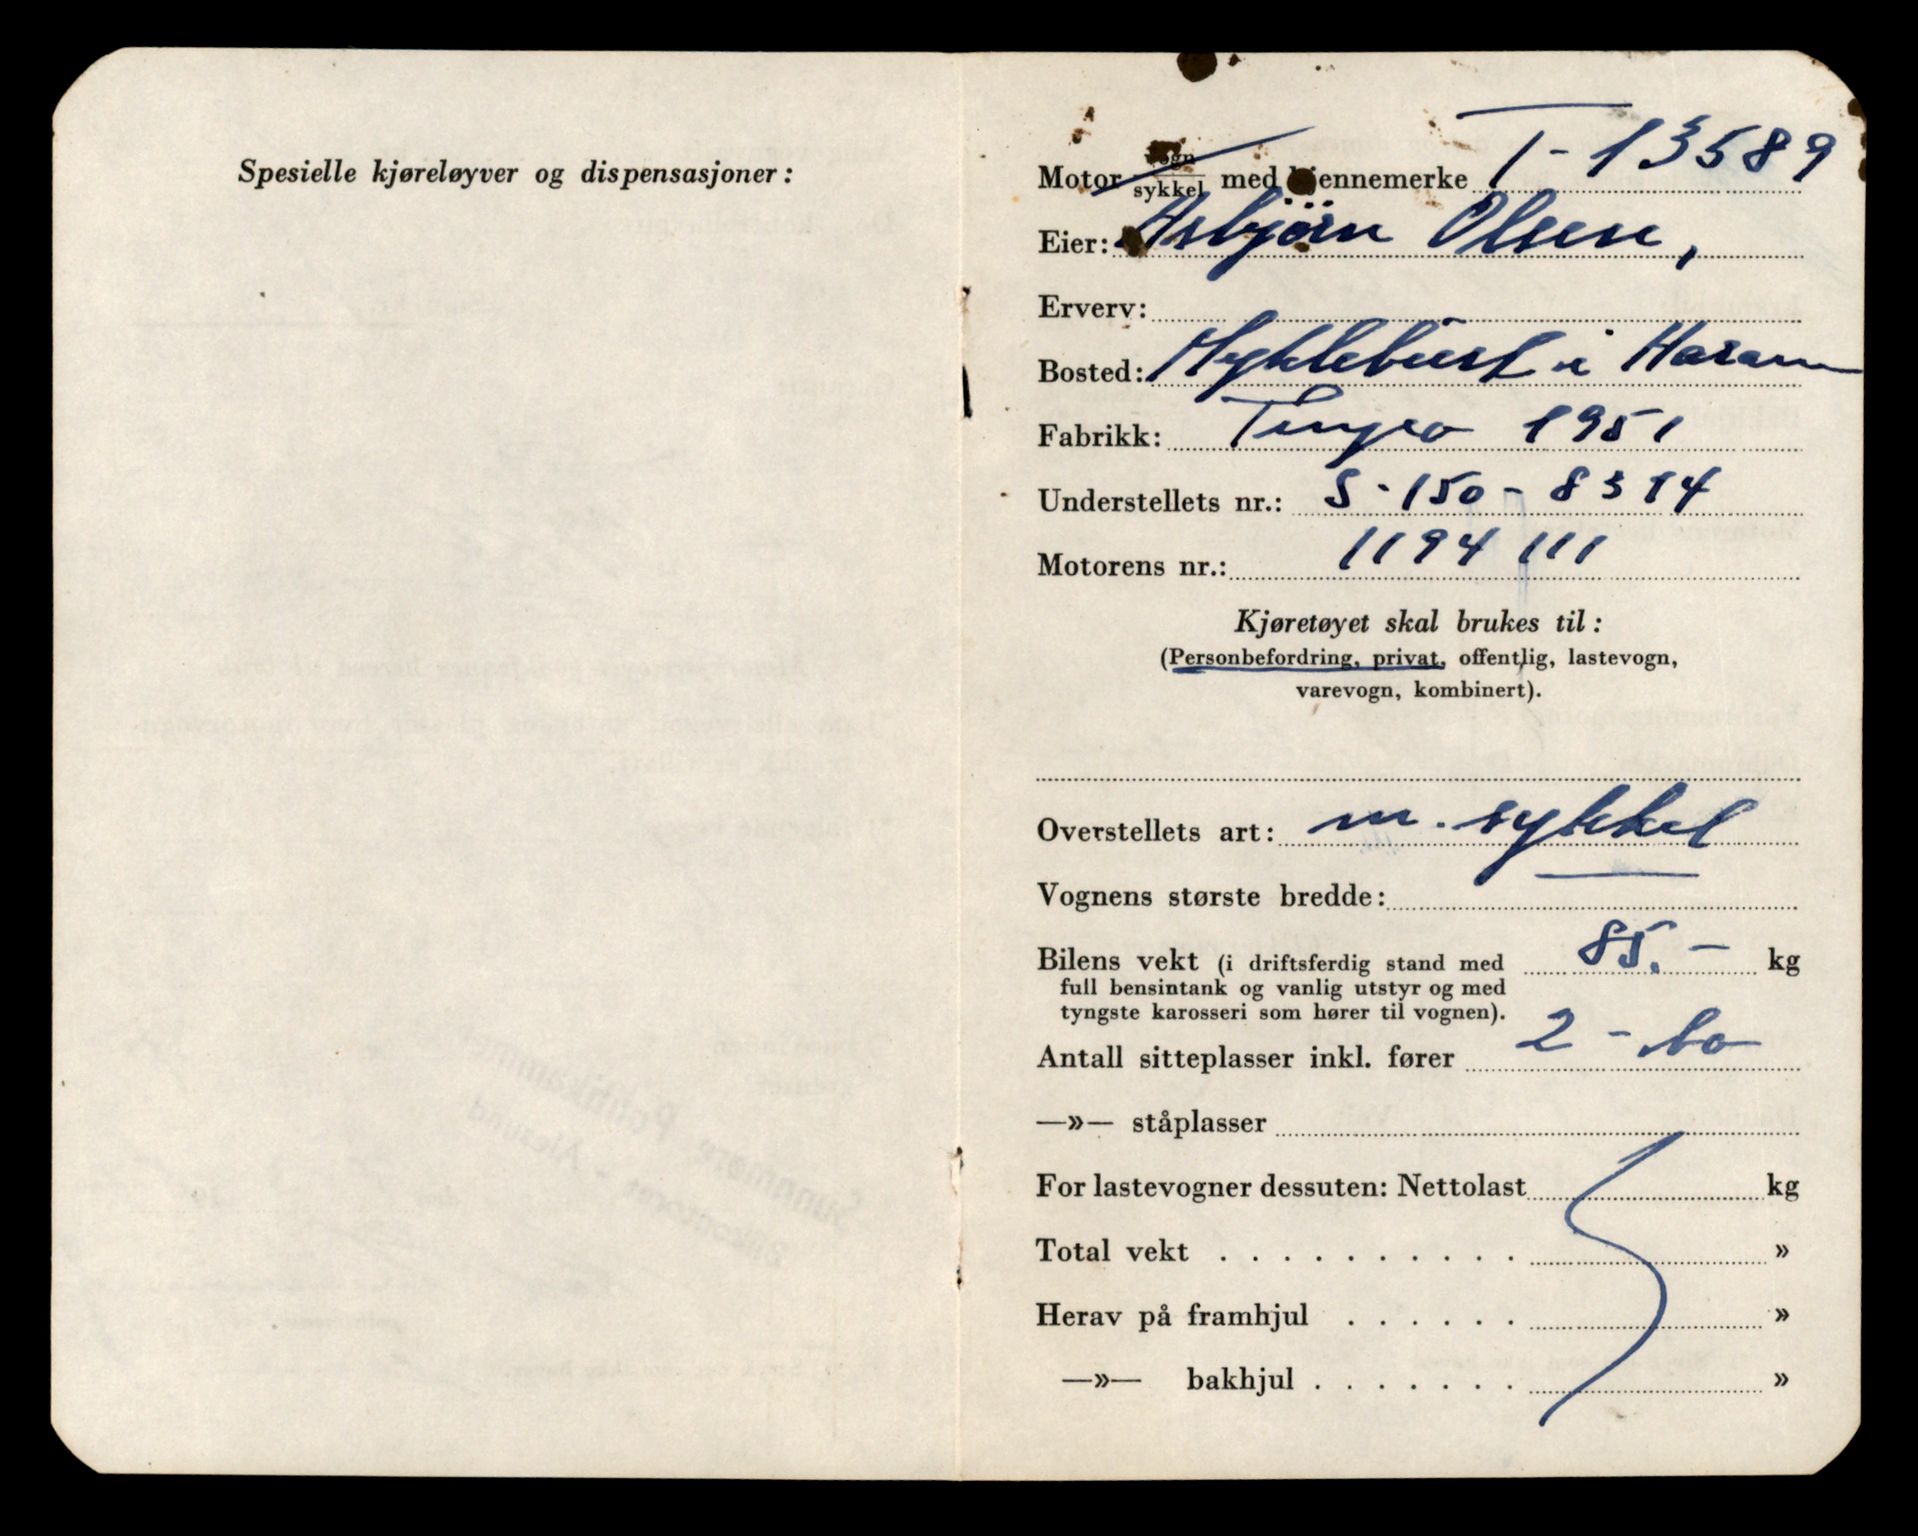 Spesielle kjøreløyver og dispensasjoner:
Motor vogn/sykkel med kjennemerke T-13589
Eier: Asbjörn Olsen,
Erverv:
Bosted: Myklebust i Haram
Fabrikk: Tempo 1951
Understellets nr.: S-150-8314
Motorens nr.: 1194111
Kjøretøyet skal brukes til:
(Personbefordring, privat, offentlig, lastevogn,
varevogn, kombinert).
Overstellets art: m.sykkel
Vognens største bredde:
Bilens vekt (i driftsferdig stand med 85.- kg
full bensintank og vanlig utstyr og med
tyngste karosseri som hører til vognen).
Antall sitteplasser inkl. fører 2 - to
—»— ståplasser
For lastevogner dessuten: Nettolast kg
Total vekt . . . . . . . . . . »
Herav på framhjul . . . . . . »
—»— bakhjul . . . . . . . »